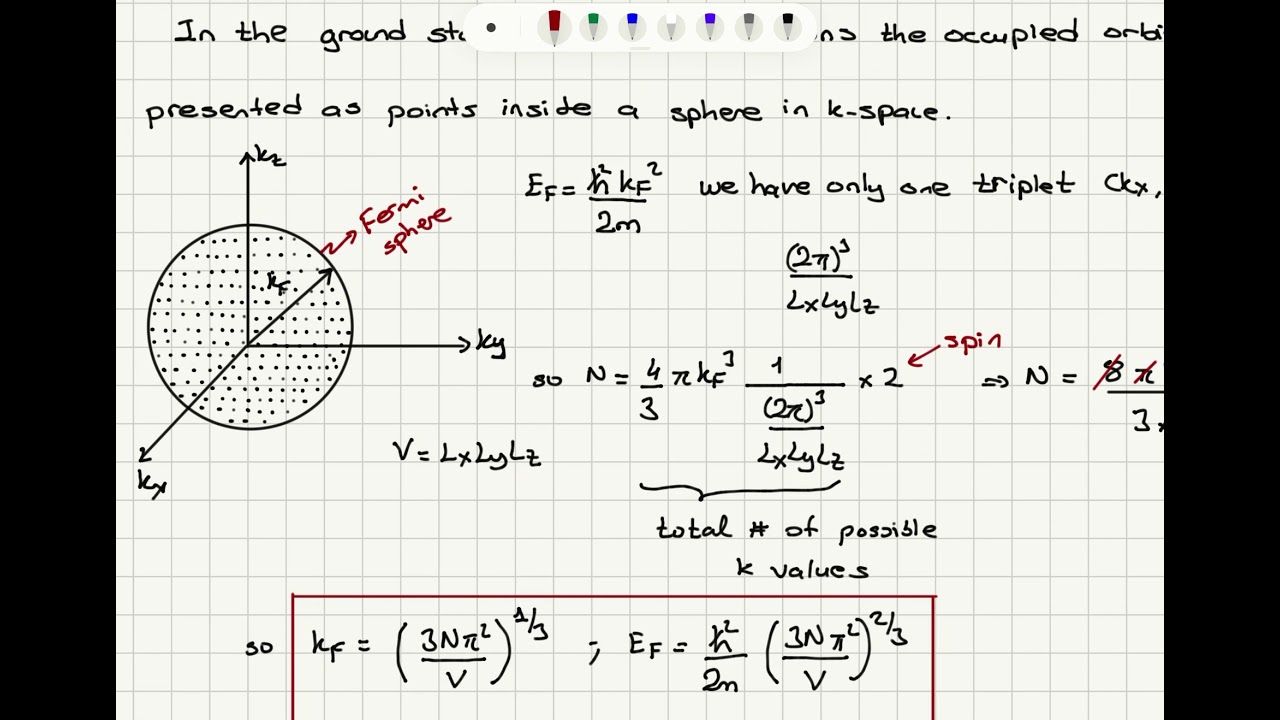 In the ground sta ns the occupied orbi
presented as points inside a sphere in k-space.
kz
Fermi
sphere
kF
ky
kx
E_F = ħ² k_F² / 2m we have only one triplet (kx,
(2π)³ / LxLyLz
so N = 4/3 π k_F³ 1 / ((2π)³ / LxLyLz) × 2 ⇒ N = 8 π
3
spin
V = LxLyLz
total # of possible
k values
so k_F = (3Nπ² / V)^1/3 ; E_F = ħ² / 2m (3Nπ² / V)^2/3